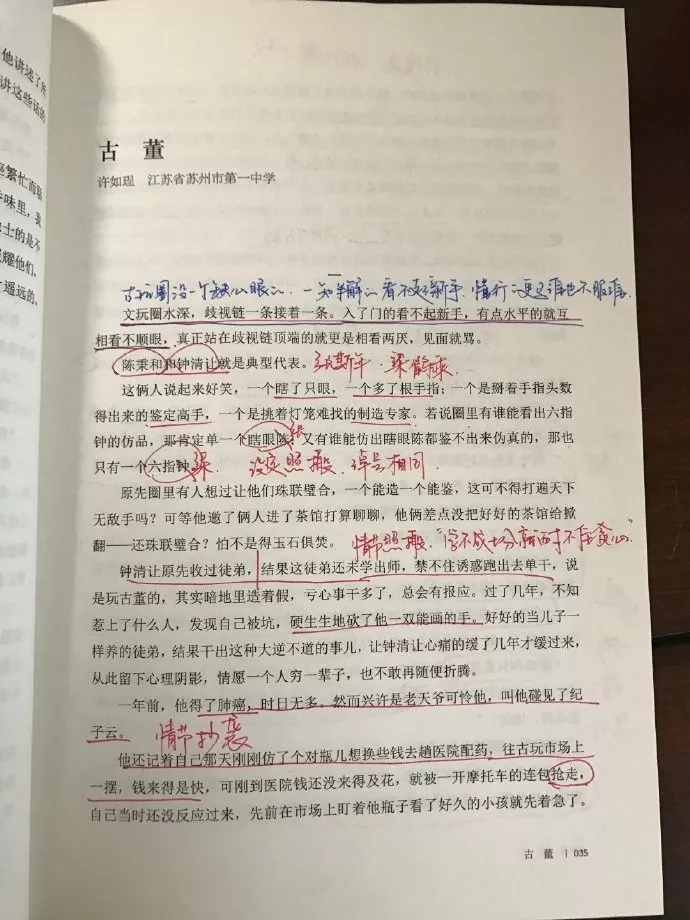 他讲述了所
讲这些话的
繁忙而临
味里,我
士的是不
耀他们,
遥远的,
古 董
许如珵 江苏省苏州市第一中学
一
古玩圈没一个缺心眼的、一知半解的看不起新手,懂行的更是谁也不服谁.
文玩圈水深,歧视链一条接着一条。入了门的看不起新手,有点水平的就互
相看不顺眼,真正站在歧视链顶端的就更是相看两厌,见面就骂。
陈秉和和钟清让就是典型代表。
这俩人说起来好笑,一个瞎了只眼,一个多了根手指;一个是掰着手指头数
得出来的鉴定高手,一个是挑着灯笼难找的制造专家。若说圈里有谁能看出六指
钟的仿品,那肯定单一个瞎眼陈,又有谁能仿出瞎眼陈都鉴不出来伪真的,那也
张
只有一个六指钟。
梁 设定照搬、绰号相同
原先圈里有人想过让他们珠联璧合,一个能造一个能鉴,这可不得打遍天下
无敌手吗?可等他邀了俩人进了茶馆打算聊聊,他俩差点没把好好的茶馆给掀
翻——还珠联璧合?怕不是得玉石俱焚。
情节照搬
钟清让原先收过徒弟,结果这徒弟还未学出师,禁不住诱惑跑出去单干,说
是玩古董的,其实暗地里造着假,亏心事干多了,总会有报应。过了几年,不知
惹上了什么人,发现自己被坑,硬生生地砍了他一双能画的手。好好的当儿子一
样养的徒弟,结果干出这种大逆不道的事儿,让钟清让心痛的缓了几年才缓过来,
从此留下心理阴影,情愿一个人穷一辈子,也不敢再随便折腾。
一年前,他得了肺癌,时日无多。然而兴许是老天爷可怜他,叫他碰见了纪
子云。
情节抄袭
他还记着自己那天刚刚仿了个对瓶儿想换些钱去趟医院配药,往古玩市场上
一摆,钱来得是快,可刚到医院钱还没来得及花,就被一开摩托车的连包抢走,
自己当时还没反应过来,先前在市场上盯着他瓶子看了好久的小孩就先着急了。
古 董 | 035